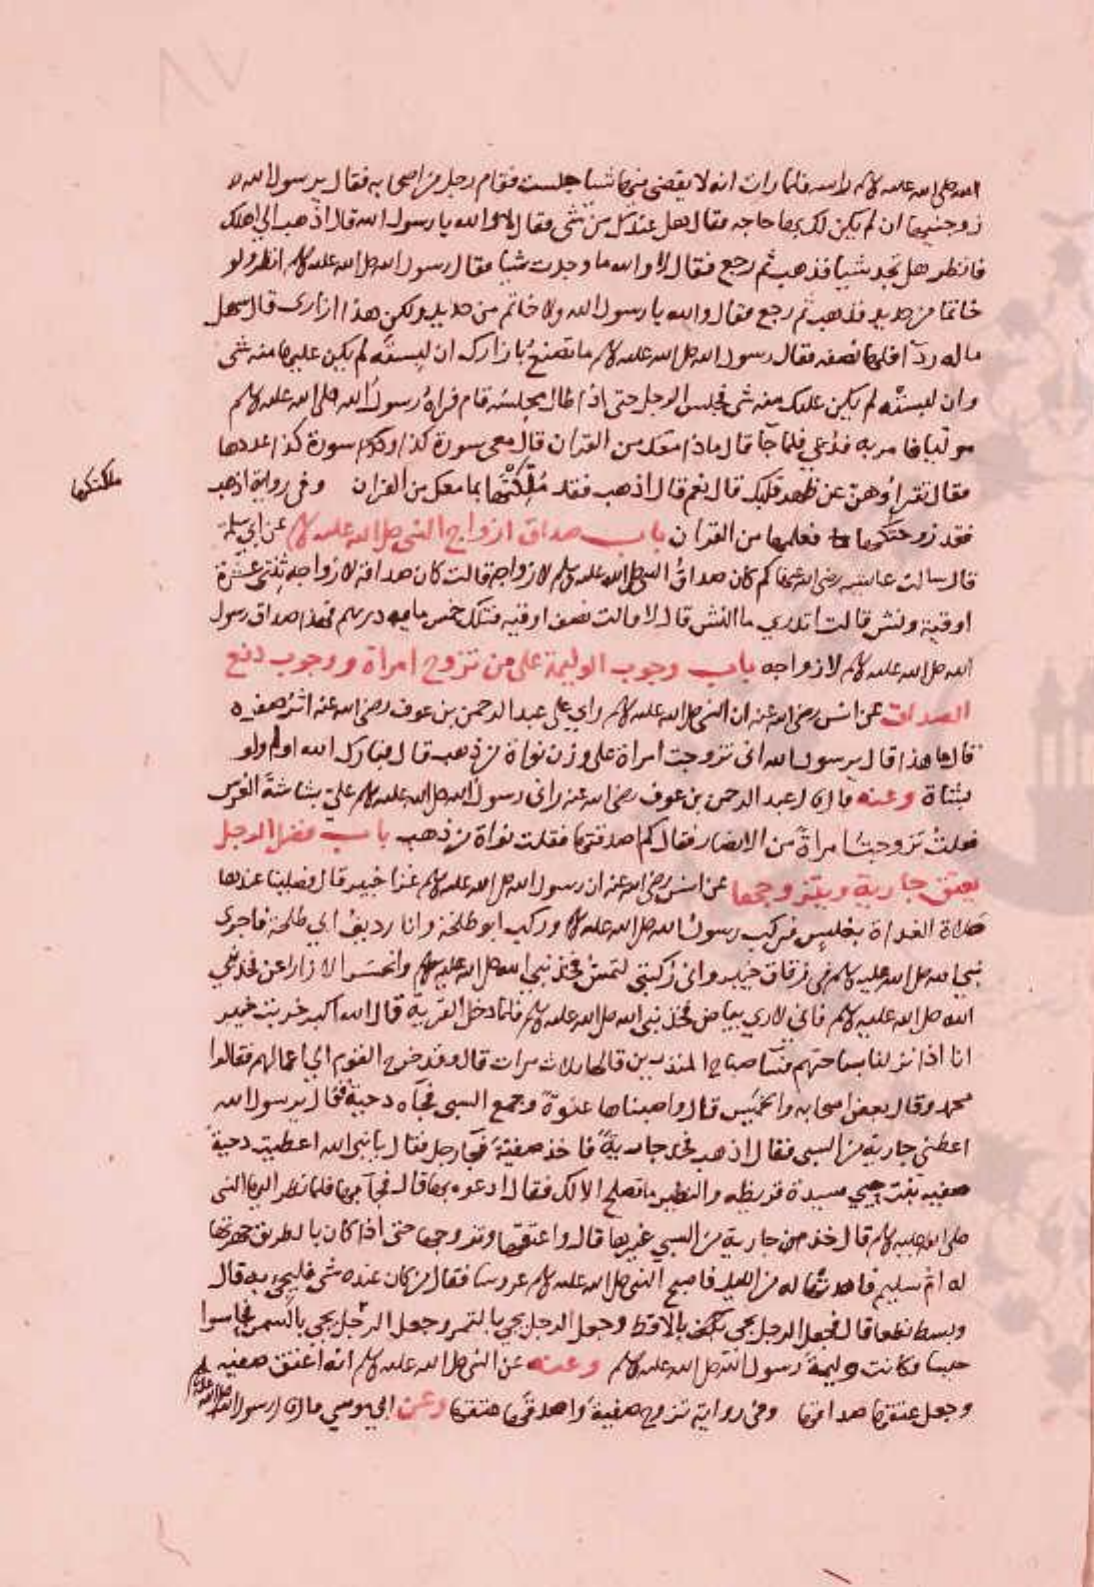 الله صلى الله عليه وسلم راسه فلما رات انه لا يقضى فيها شيا جلست فقام رجل من اصحابه فقال يرسول الله
زوجنيها ان لم يكن لك بها حاجه فقال هل عندك من شى فقال لا والله يا رسول الله قال اذهب الى اهلك
فانظر هل تجد شيا فذهب ثم رجع فقال لا والله ما وجدت شيا فقال رسول الله صلى الله عليه وسلم انظر ولو
خاتما من حديد فذهب ثم رجع فقال والله يا رسول الله ولا خاتم من حديد ولكن هذا ازارى قال سهل
ماله ردآ فلها نصفه فقال رسول الله صلى الله عليه وسلم ما تصنع بازارك ان لبستَه لم يكن عليها منه شى
وان لبستْه لم يكن عليك منه شى فجلس الرجل حتى اذا طال مجلسه قام فراهُ رسول الله صلى الله عليه وسلم
موليا فامر به فدُعي فلما جآ قال ماذا معك من القران قال معى سورة كذا وكذا سورة كذا عددها
فقال تقرأوهنّ عن ظهر قلبك قال نعم قال اذهب فقد مُلِّكْتَها بما معك من القران وفى رواية اذهب
ملكتكها
فقد زوجتكها فعلمها من القران باب صداق ازواج النبى صلى الله عليه وسلم عن ابي سلمة
قال سالت عايشه رضى الله عنها كم كان صداقُ النبى صلى الله عليه وسلم لازواجه قالت كان صداقه لازواجه ثنتى عشرة
اوقية ونش قالت اتدري ما النش قال لا قالت نصف اوقيه فتلك خمس مايه درهم فهذا صداق رسول
الله صلى الله عليه وسلم لازواجه باب وجوب الوليمة على من تزوج امراة ووجوب دفع
الصداق عن انس رضى الله عنه ان النبى صلى الله عليه وسلم راي على عبد الرحمن بن عوف رضى الله عنه اثر صفره
قال ما هذا قال يرسول الله انى تزوجت امراة على وزن نواة من ذهب قال فبارك الله اولم ولو
بشاة وعنه قال عبد الرحمن بن عوف رضى الله عنه رانى رسول الله صلى الله عليه وسلم عليّ بشاشة العرس
فقلتُ تزوجتُ امراةً من الانصار فقال كم اصدقتها فقلت نواة من ذهب باب فضل الرجل
يعتق جارية ويتزوجها عن انس رضى الله عنه ان رسول الله صلى الله عليه وسلم غزا خيبر قال فصلينا عندها
صلاة الغداة بغلس فركب رسول الله صلى الله عليه وسلم وركب ابو طلحة وانا رديف ابي طلحة فاجرى
نبي الله صلى الله عليه وسلم فى زقاق خيبر وانى ركبتى لتمسُّ فخذ نبى الله صلى الله عليه وسلم وانحسر الازار عن فخذ نبى
الله صلى الله عليه وسلم فاني لارى بياض فخذ نبى الله صلى الله عليه وسلم فلما دخل القرية قال الله اكبر خربت خيبر
انا اذا نزلنا بساحتهم فسآ صباح المنذرين قالها ثلاث مرات قال وقد خرج القوم الى اعمالهم فقالوا
محمد وقال بعض اصحابه والخميس قال واصبناها عنوةً وجمع السبى فجآه دحية فقال يرسول الله
اعطنى جارية من السبى فقال اذهب فخذ جاريةً فاخذ صفيّة فجآ رجل فقال يا نبى الله اعطيت دحية
صفيه بنت حيي سيدة قريظه والنظير ما تصلح الا لك فقال ادعوه بها قال فجآ بها فلما نظر اليها النبى
صلى الله عليه وسلم قال خذ جارية من السبي غيرها قال واعتقها وتزوجها حتى اذا كان بالطريق جهزتها
له امّ سليم فاهدتها له من الليل فاصبح النبى صلى الله عليه وسلم عروسا فقال من كان عنده شى فليجى به قال
وبسط نطعا قال فجعل الرجل يجى بالاقط وجعل الرجل يجى بالتمر وجعل الرجل يجى بالسمن فحاسوا
حيسا فكانت وليمة رسول الله صلى الله عليه وسلم وعنه عن النبى صلى الله عليه وسلم انه اعتق صفيه
وجعل عتقها صداقها وفى رواية تزوج صفية واصدقها عتقها وعن ابي موسي قال قال رسول الله صلى الله عليه وسلم